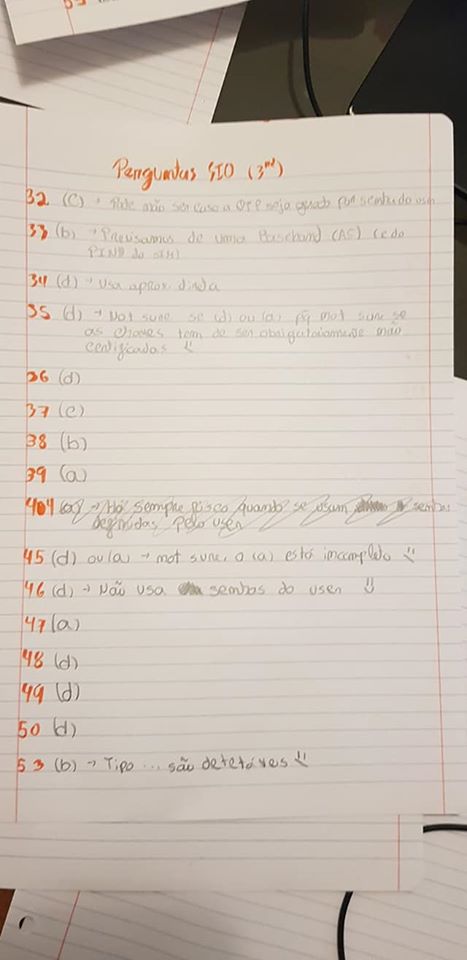 Perguntas SIO (3nd)
32 (c) → Pode não ser caso a OTP seja gerado por senha do user
33 (b) → Precisamos de uma Baseband (AS) (e do
do SIM)
34 (d) → Usa aprox. direta
35 (d) → Not sure se (d) ou (a) pq not sure se
as chaves tem de ser obrigatoriamente não
certificadas
36 (d)
37 (c)
38 (b)
39 (a)
Há sempre risco quando se usam senhas
definidas pelo user
45 (d) ou (a) → not sure, a (a) está incompleto
46 (d) → Não usa senhas do user
47 (a)
48 (d)
49 (d)
50 (d)
53 (b) → Tipo ... são detetáveis